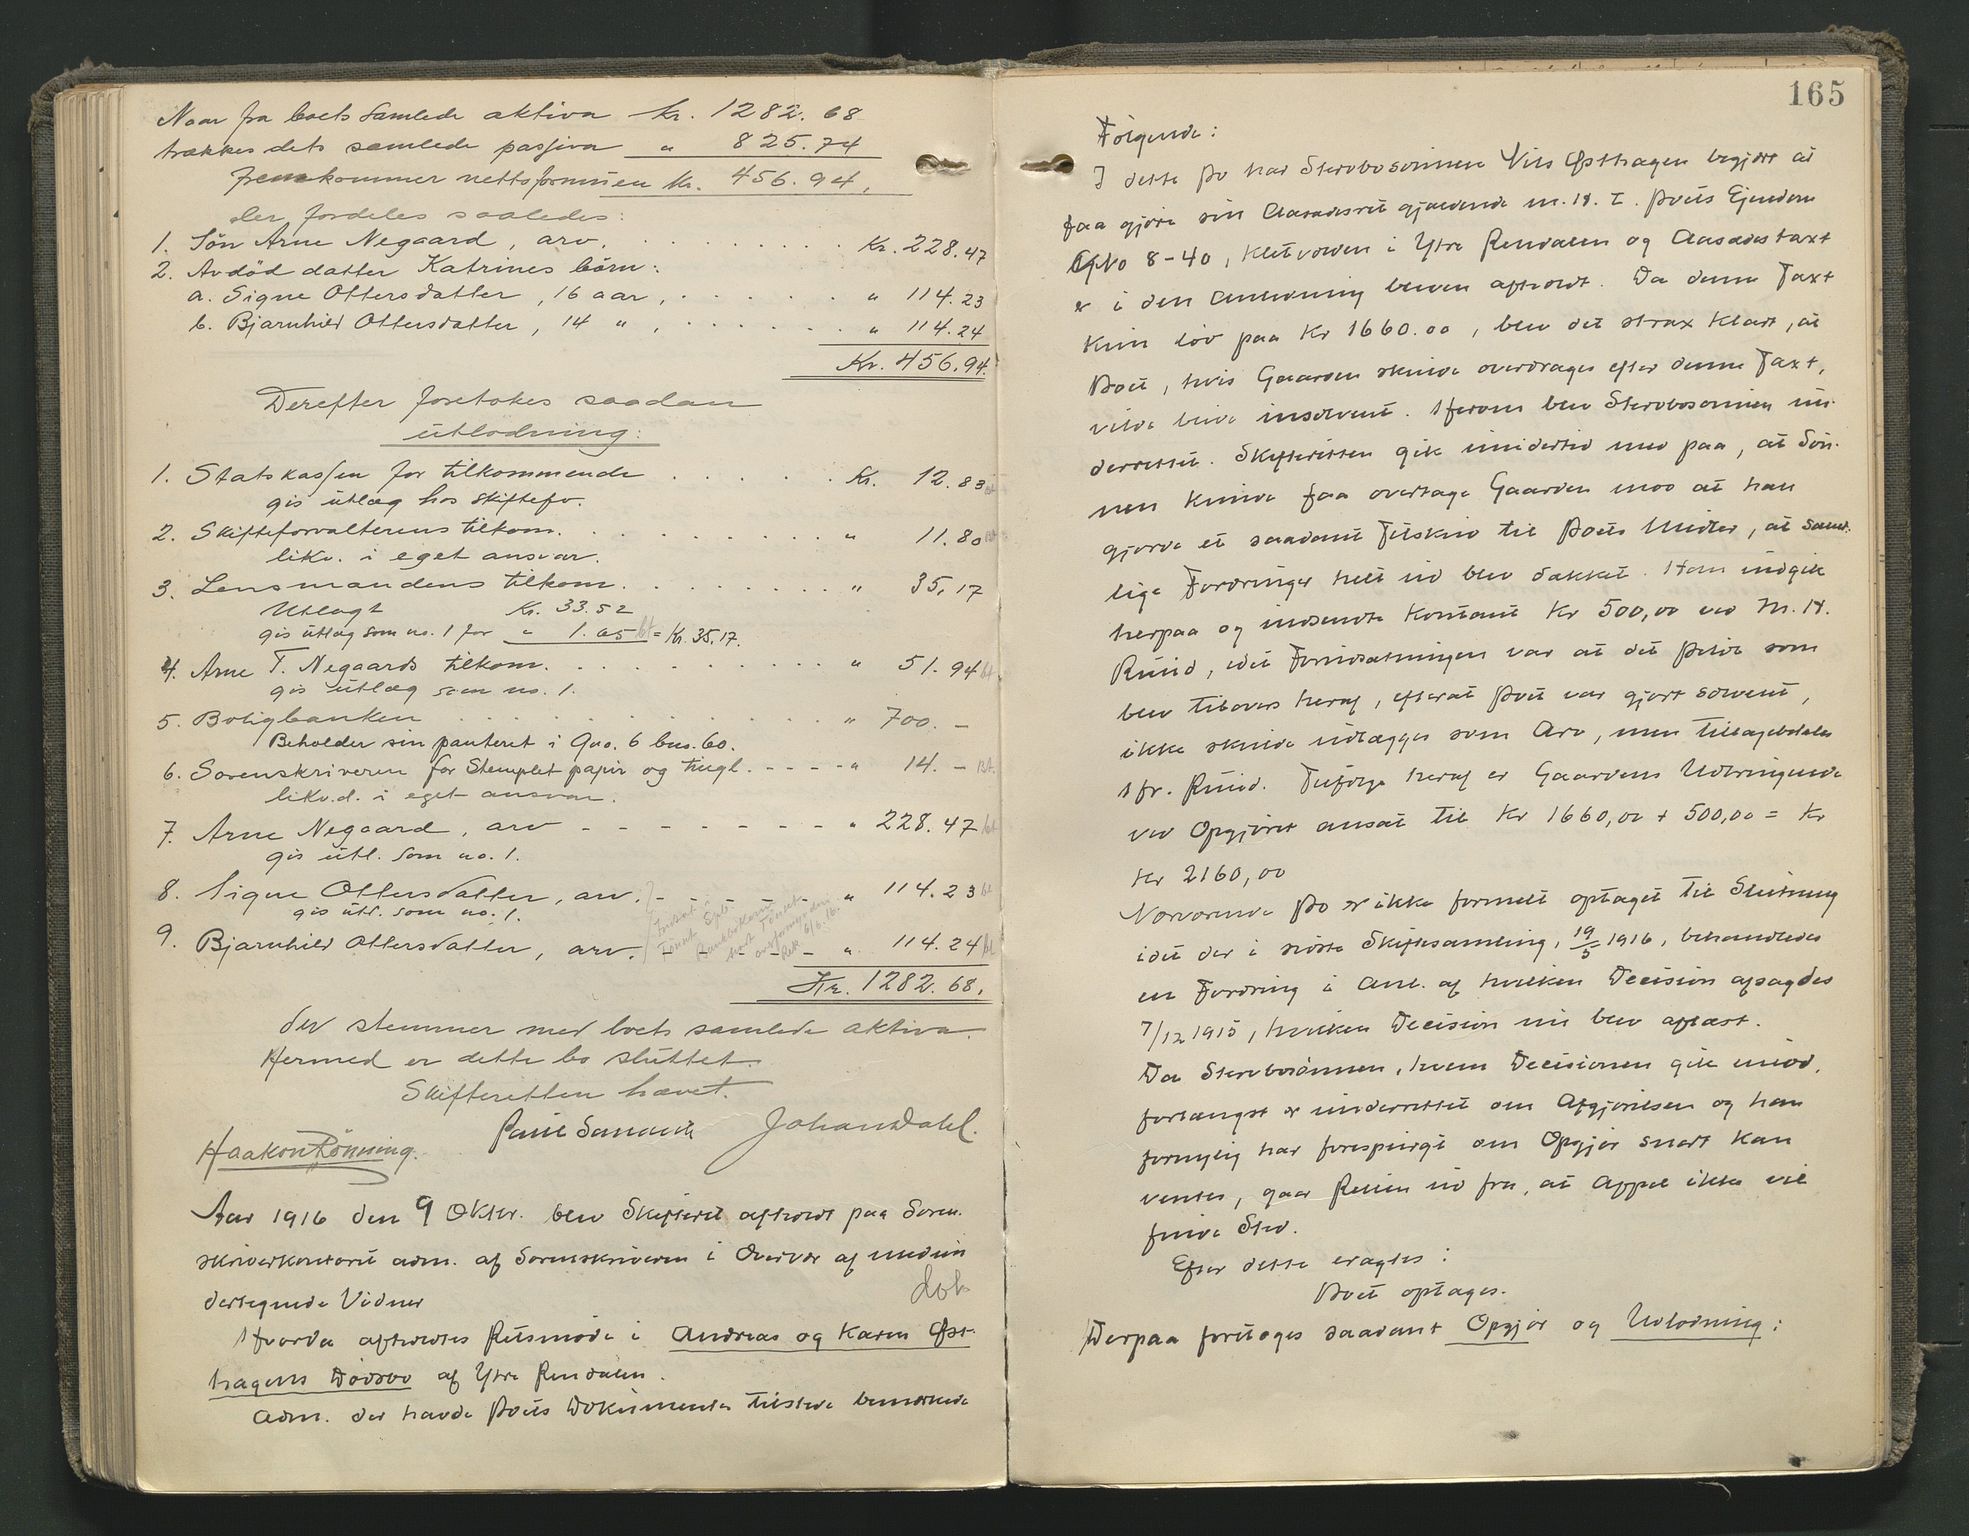 Naar fra boets samlede aktiva kr. 1282.68
trækkes dets samlede passiva " 825.74
fremkommer nettoformuen kr. 456.94,
der fordeles saaledes:
1. Søn Arne Negaard, arv. Kr. 228.47
2. Avdød datter Katrines børn:
a. Signe Ottersdatter, 16 aar, " 114.23
b. Bjarnhild Ottersdatter, 14 " , " 114.24
Kr. 456.94.
Derefter foretokes saadan
utlodning:
1. Statskassen for tilkommende Kr. 12.83 bt
gis utlæg hos skiftefv.
2. Skifteforvalterens tilkom. " 11.80 Bt
likv. i eget ansvar.
3. Lensmandens tilkom. " 35.17
Utlagt Kr. 33.52
gis utlæg som no. 1 for " 1.65 bt = Kr. 35.17.
4. Arne T. Negaards tilkom. " 51.94 bt.
gis utlæg som no. 1.
5. Boligbanken " 700.-
Beholder sin panteret i Gno. 6 bno. 60.
6. Sorenskriveren for Stemplet papir og tingl. " 14.- Bt.
likv.d. i eget ansvar.
7. Arne Negaard, arv " 228.47 bt
gis utl. som no. 1.
8. Signe Ottersdatter, arv. " 114.23 bt
gis utl. som no. 1.
9. Bjarnhild Ottersdatter, arv. " 114.24 bt
Kr. 1282.68.
der stemmer med boets samlede aktiva.
Hermed er dette bo sluttet.
Skifteretten hævet.
Haakon Rönning. Johan Dahl.
Aar 1916 den 9 Oktbr. blev Skifteret afholdt paa Soren-
skriverkontoret adm. af Sorenskriveren i Overvær af undertegnede Vidner
Hvorda afholdtes Retsmøde i Andreas og Karen Øst-
hagens Dødsbo af Ytre Rendalen.
Adm. der havde Boets Dokumenter tilstede bemærkede
165
Følgende:
I dette Bo har Stervbosønnen Nils Østhagen begjært at
faa gjøre sin Aasædesret gjældende m.H.T. Boets Ejendom
GNo 8-40, Kletvolden i Ytre Rendalen og Aasædestaxt
er i den Anledning bleven afholdt. Da denne Taxt
kun lød paa Kr 1660.00, blev det strax klart, at
Boet, hvis Gaarden skulde overdrages efter denne Taxt,
vilde blive insolvent. Herom blev Stervbosønnen un-
derrettet. Skifteretten gik imidlertid med paa, at Søn-
nen kunde faa overtage Gaarden mod at han
gjorde et saadant Tilskud til Boets Midler, at samt-
lige Fordringer helt ud blev dækket. Han indgik
herpaa og indsendte kontant Kr 500,00 ved M. H.
Ruud, idet Forudsætningen var at det Beløb som
blev tilovers heraf, efterat Boet var gjort solvent,
ikke skulde udlægges som Arv, men tilbagebetales
Hr. Ruud. Tilfølge heraf er Gaardens Udbringende
ved Opgjøret ansat til Kr 1660,00 + 500,00 = Kr
Kr 2160,00
Nærværende Bo er ikke formelt optaget til Slutning
idet der i sidste Skiftesamling, 19/5 1916, behandledes
en Fordring i Anl. af hvilken Decision afsagdes
7/12 1915, hvilken Decision nu blev aflæst.
Da Stervbosønnen, hvem Decisionen gik imod,
forlængst er underrettet om Afgjørelsen og han
fornylig har forespurgt om Opgjør snart kan
ventes, gaar Retten ud fra, at Appel ikke vil
finde Sted.
Efter dette eragtes:
Boet optages.
Derpaa foretoges saadant Opgjør og Udlodning: